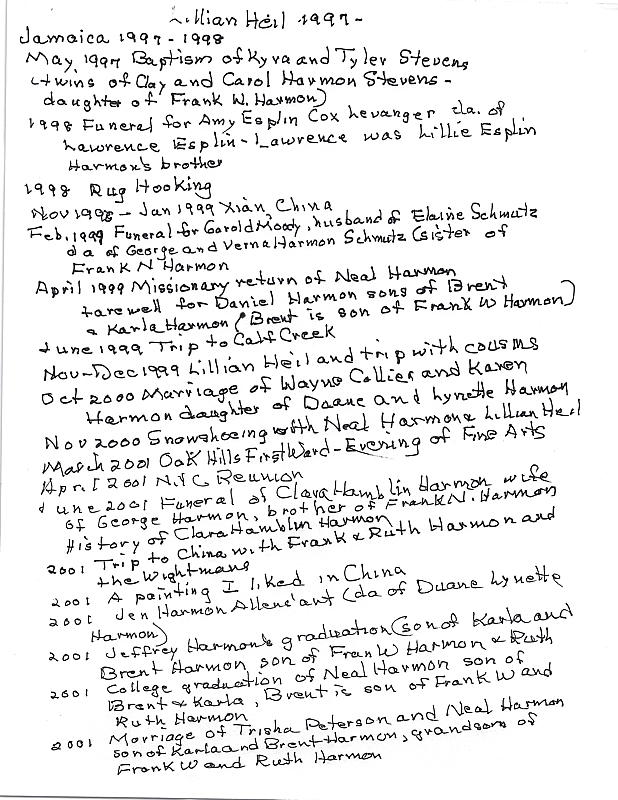 Lillian Heil 1997-
Jamaica 1997-1998
May 1997 Baptism of Kyra and Tyler Stevens
(twins of Clay and Carol Harmon Stevens -
daughter of Frank W. Harmon)
1998 Funeral for Amy Esplin Cox Levanger da. of
Lawrence Esplin - Lawrence was Lillie Esplin
Harmon's brother
1998 Rug Hooking
Nov 1998 - Jan 1999 Xian, China
Feb. 1999 Funeral for Garold Moody, husband of Elaine Schmutz
da of George and Verna Harmon Schmutz (sister of
Frank N Harmon
April 1999 Missionary return of Neal Harmon
farewell for Daniel Harmon sons of Brent
& Karla Harmon (Brent is son of Frank W Harmon)
June 1999 Trip to Calf Creek
Nov-Dec 1999 Lillian Heil and trip with cousins
Oct 2000 Marriage of Wayne Collier and Karen
Harmon daughter of Duane and Lynette Harmon
Nov 2000 Snowshoeing with Neal Harmon & Lillian Heil
March 2001 Oak Hills First Ward - Evening of Fine Arts
April 2001 NYC Reunion
June 2001 Funeral of Clara Hamblin Harmon wife
of George Harmon, brother of Frank N. Harmon
History of Clara Hamblin Harmon
2001 Trip to China with Frank & Ruth Harmon and
the Wightmans
2001 A painting I liked in China
2001 Jen Harmon Allen's art (da of Duane Lynette
Harmon)
2001 Jeffrey Harmon's graduation (son of Karla and
Brent Harmon son of Fran W Harmon & Ruth
2001 College graduation of Neal Harmon son of
Brent & Karla, Brent is son of Frank W and
Ruth Harmon
2001 Marriage of Trisha Peterson and Neal Harmon
son of Karla and Brent Harmon, grandson of
Frank W and Ruth Harmon